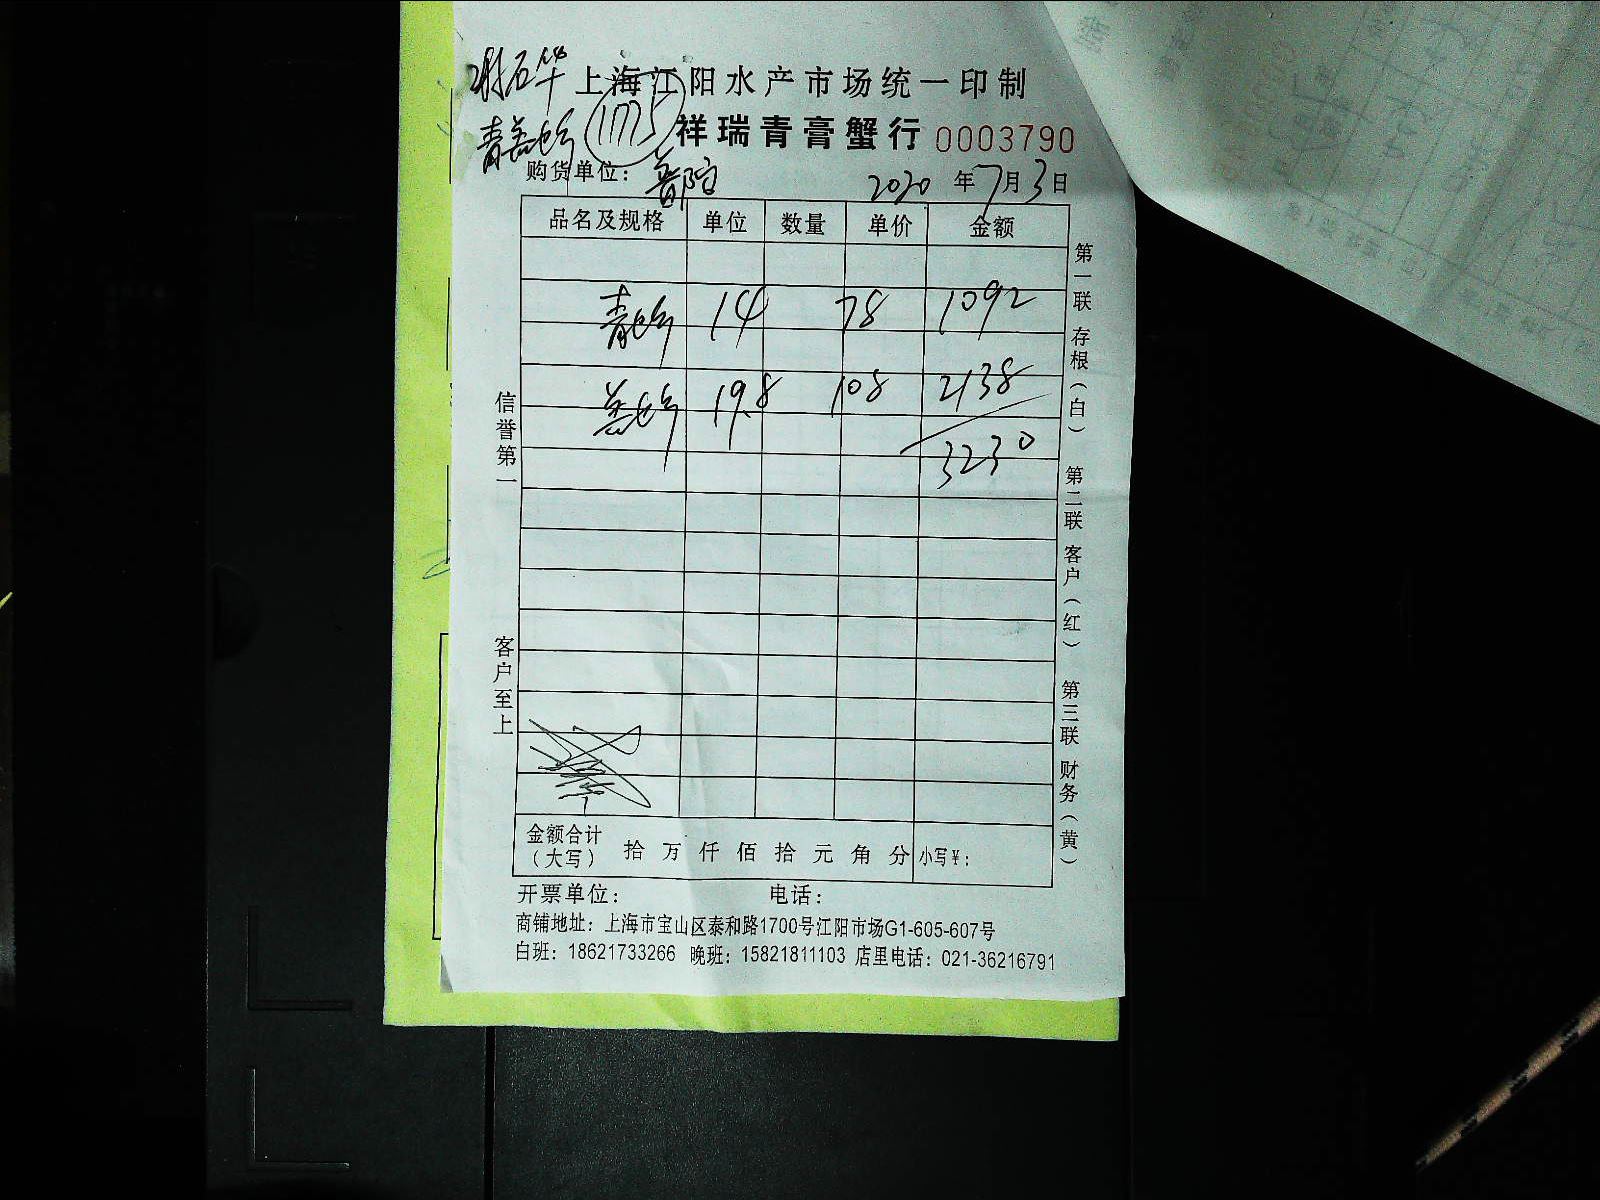 上海江阳水产市场统一印制
1775
祥瑞青膏蟹行 0003790
购货单位：普陀 2020年7月3日
品名及规格 单位 数量 单价 金额
青 14 78 1092
19.8 108 2138
3230
信誉第一
客户至上
第一联 存根（白）
第二联 客户（红）
第三联 财务（黄）
金额合计（大写） 拾 万 仟 佰 拾 元 角 分 小写¥：
开票单位： 电话：
商铺地址：上海市宝山区泰和路1700号江阳市场G1-605-607号
白班：18621733266 晚班：15821811103 店里电话：021-36216791